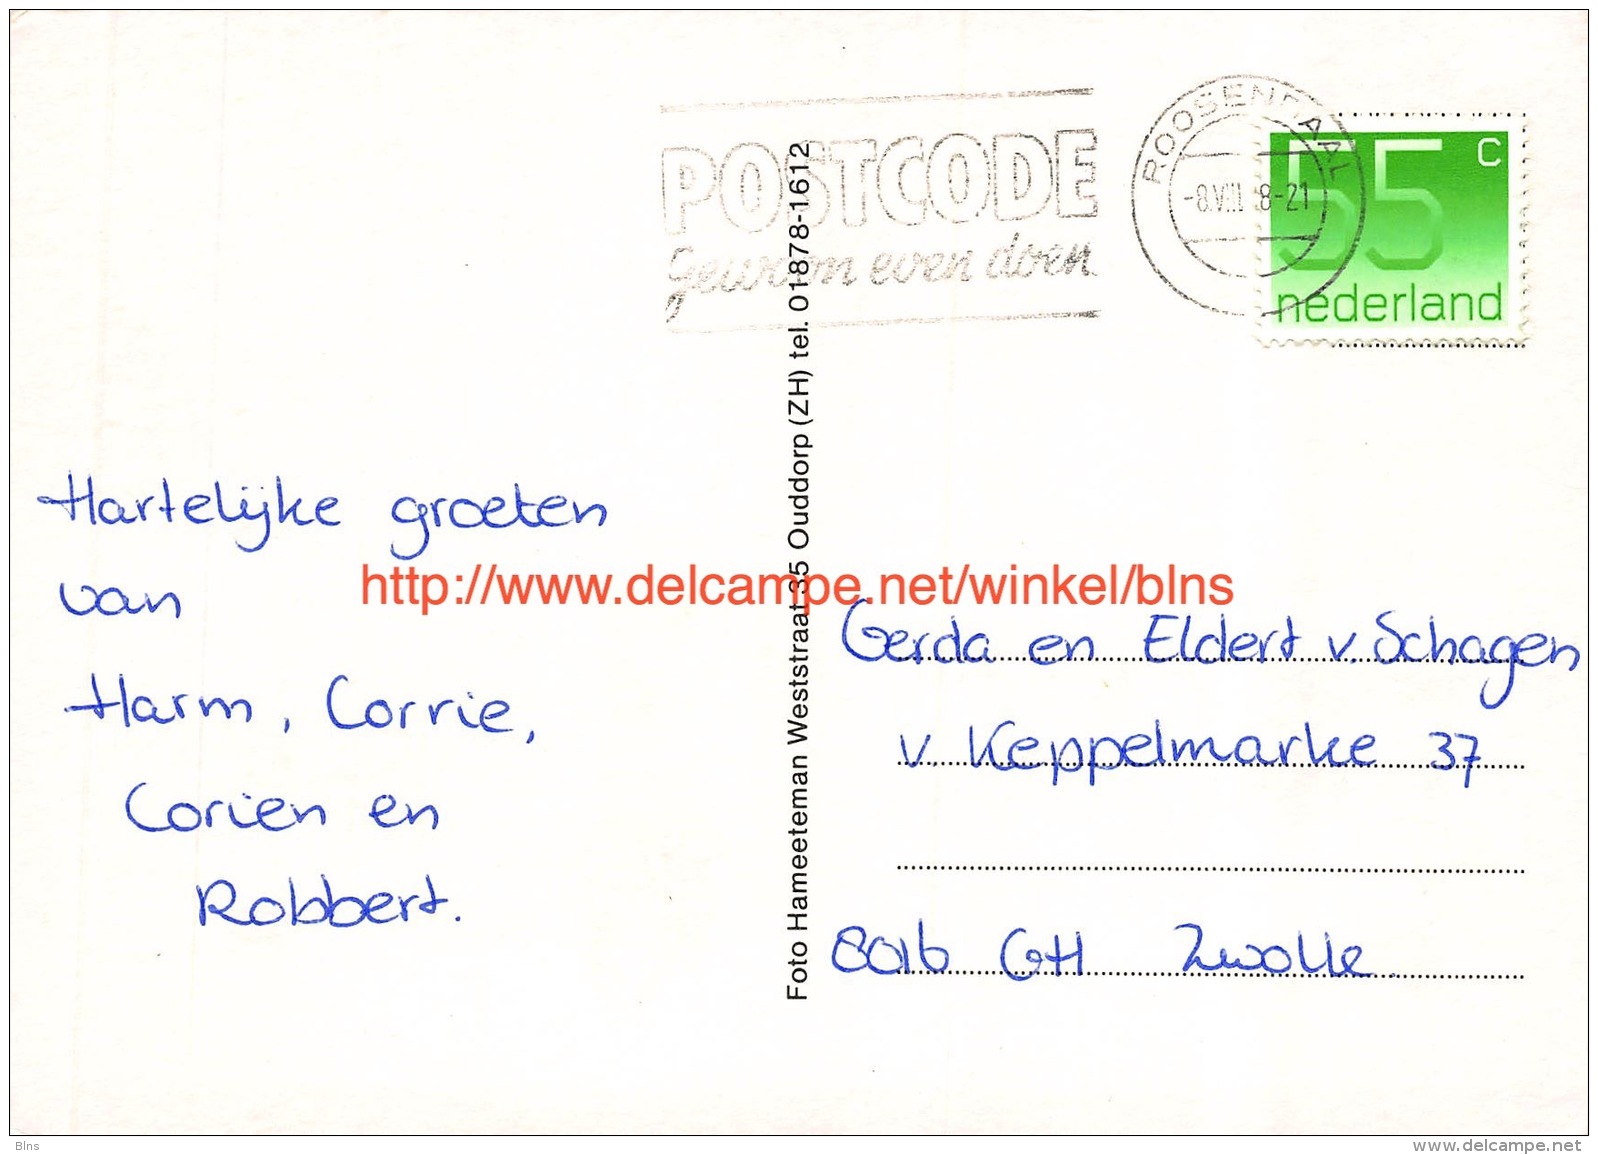 POSTCODE
gewoon even doen
ROOSENDAAL
-8.VIII 8-21
55 c
nederland
Hartelijke groeten
van
Harm, Corrie,
Coriën en
Robbert.
Foto Hameeteman Weststraat 35 Ouddorp (ZH) tel. 01878-1612
http://www.delcampe.net/winkel/blns
Gerda en Eldert v. Schagen
v. Keppelmarke 37
8016 GH Zwolle.
Blns
www.delcampe.net